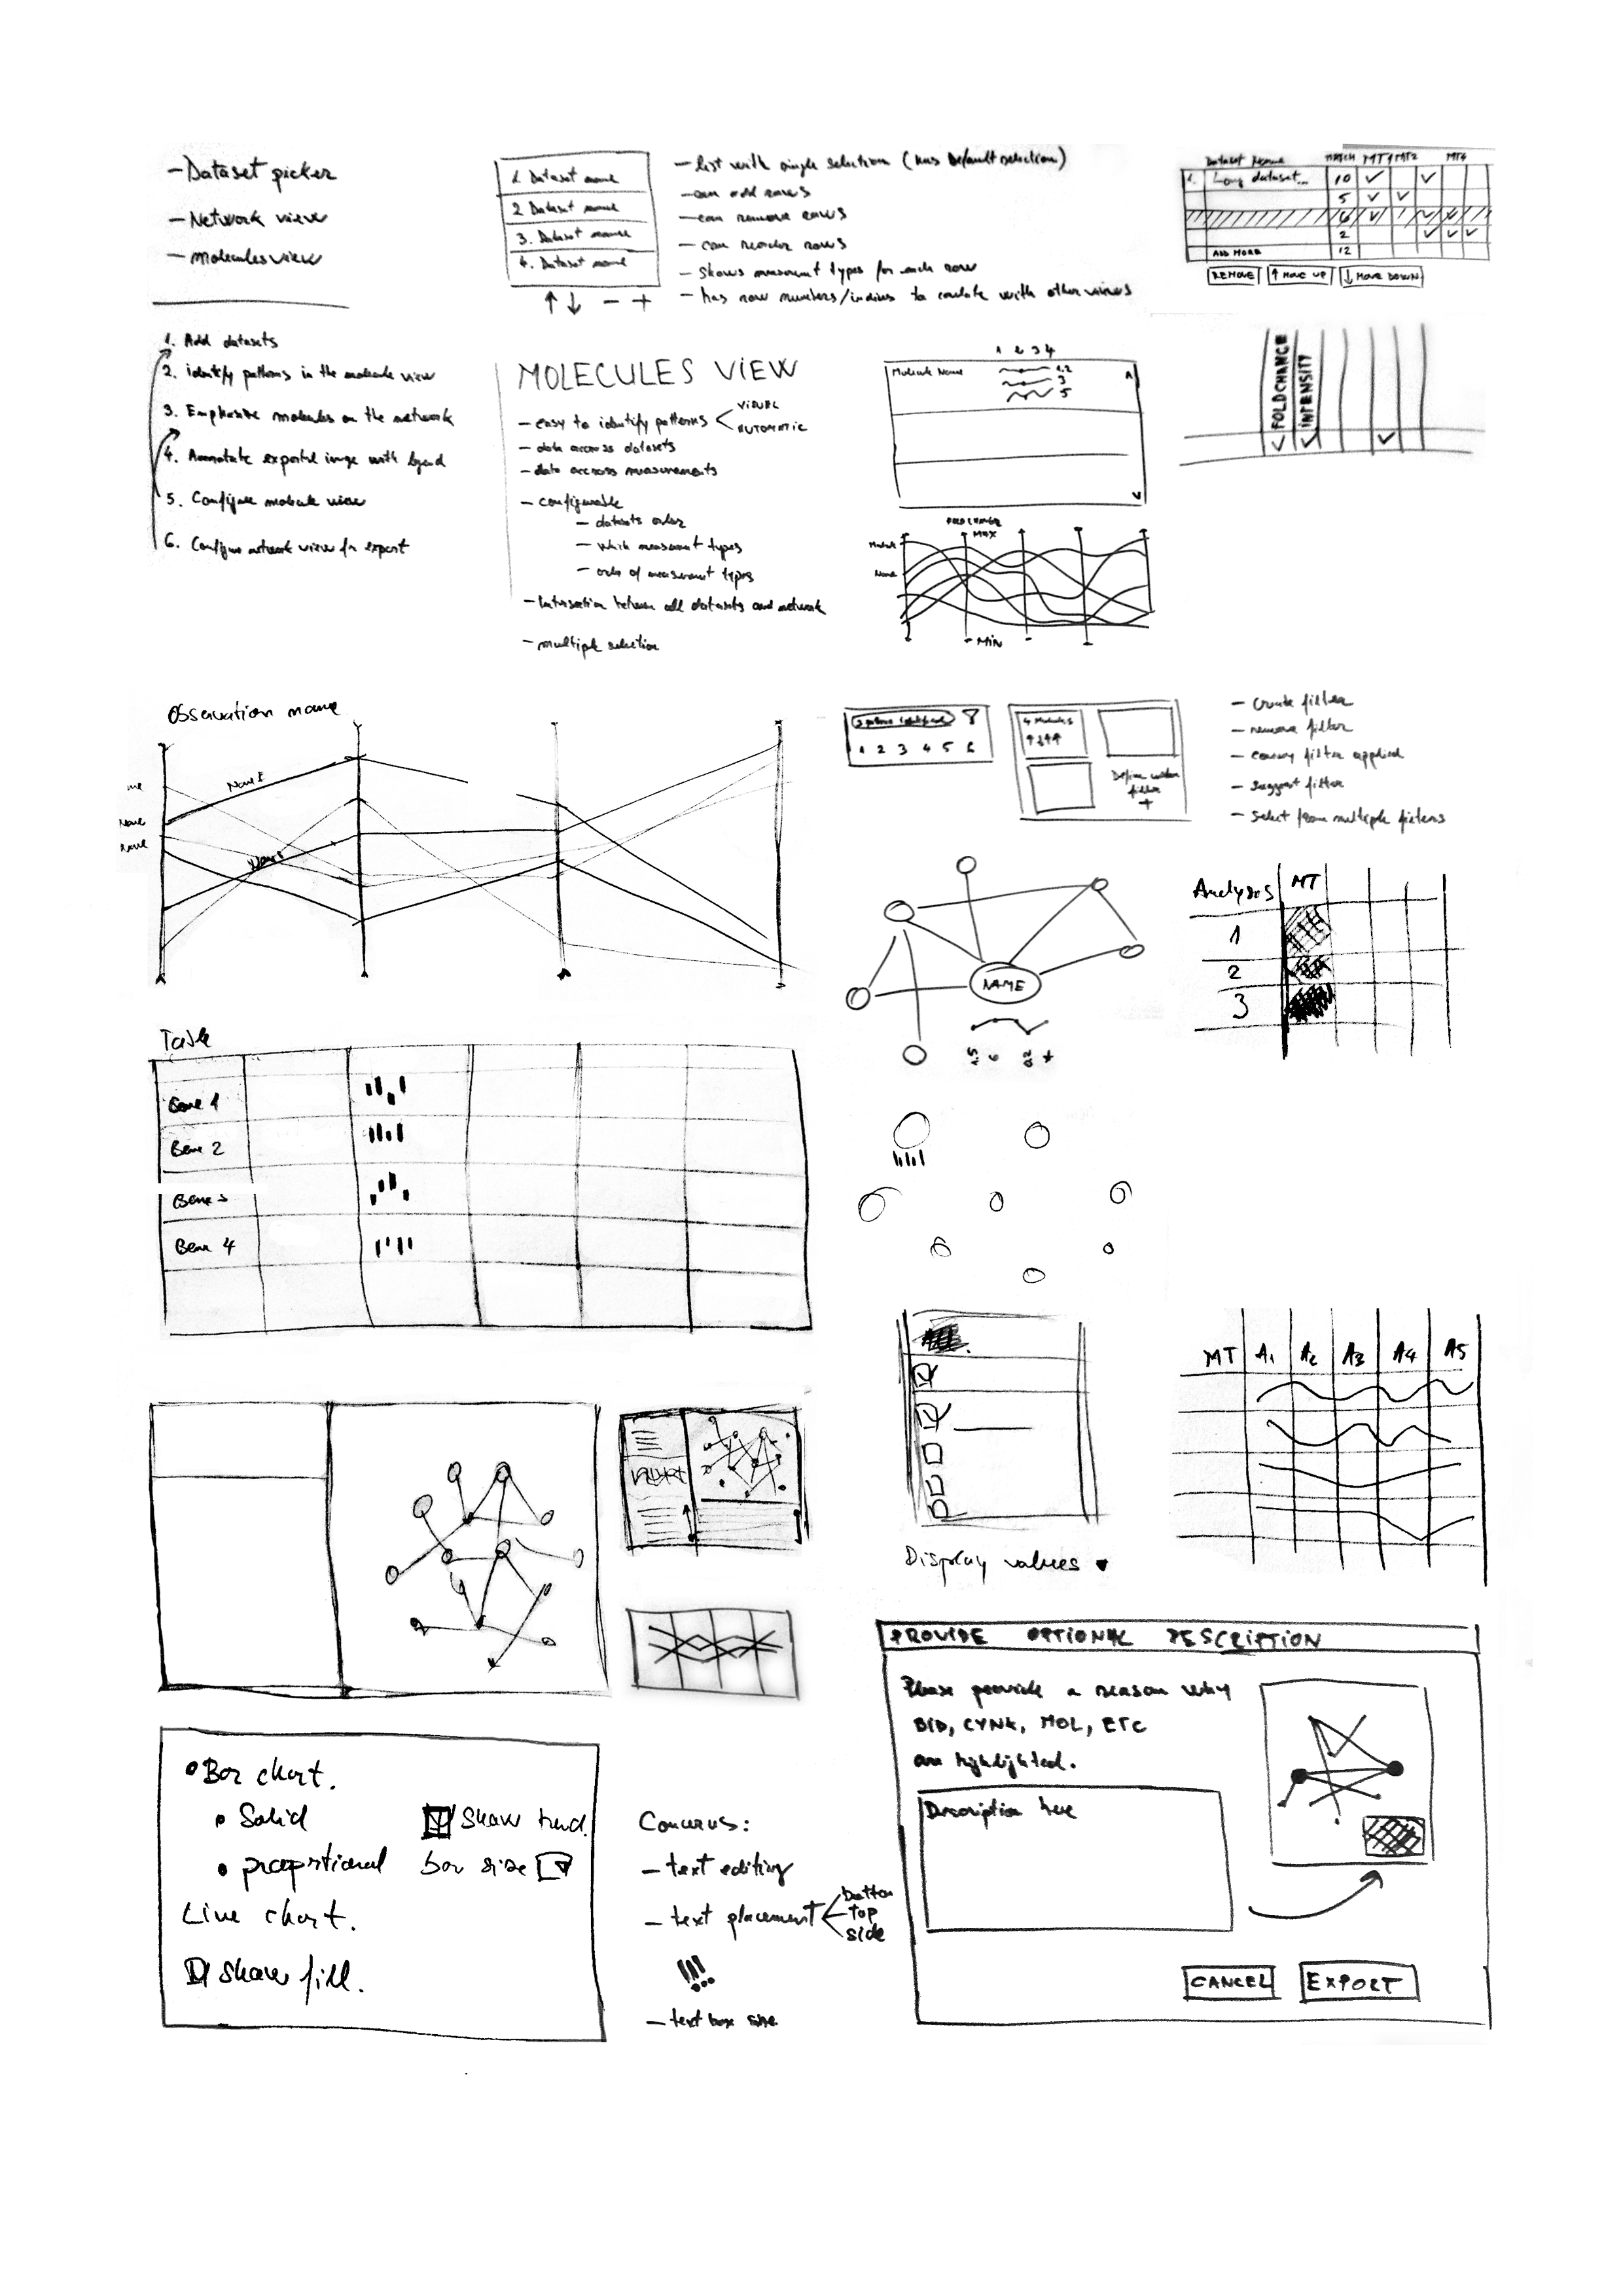 - Dataset picker
- Network view
- Molecules view
1. Dataset name
2 Dataset name
3. Dataset name
4. Dataset name
- list with single selection (has default selection)
- can add rows
- can remove rows
- can reorder rows
- shows measurement types for each row
- has row numbers/indices to correlate with other views
Dataset Name MATCH MT1 MT2 MT4
1. Long dataset... 10
5
6
2
ADD MORE 12
REMOVE ↑ MOVE UP ↓ MOVE DOWN
1. Add datasets
2. identify patterns in the molecule view
3. Emphasize molecules on the network
4. Annotate exported image with legend
5. Configure molecule view
6. Configure network view for export
MOLECULES VIEW
- easy to identify patterns
VISUAL
AUTOMATIC
- data accross datasets
- data accross measurements
- configurable
- datasets order
- which measurement types
- order of measurement types
- Intersection between all datasets and network
- multiple selection
1 2 3 4
Molecule Name
1,2
3
5
FOLDCHANGE
INTENSITY
FOLDCHANGE
MAX
Name
- MIN
Observation name
Name
Name
Name
1 2 3 4 5 6
4 Molecules
Define custom
filter
+
- create filter
- remove filter
- convey filter applied
- suggest filter
- select from multiple filters
NAME
Analyses MT
1
2
3
Table
Gene 1
Gene 2
Gene 3
Gene 4
Display values
MT A1 A2 A3 A4 A5
• Bar chart.
• Solid
Show trend.
• proportional
bar size
Line chart.
Show fill.
Concerns:
- text editing
- text placement
button
top
side
!!!
- text box size
PROVIDE OPTIONAL DESCRIPTION
Please provide a reason why
BID, CYNK, MOL, ETC
are highlighted.
Description here
CANCEL EXPORT